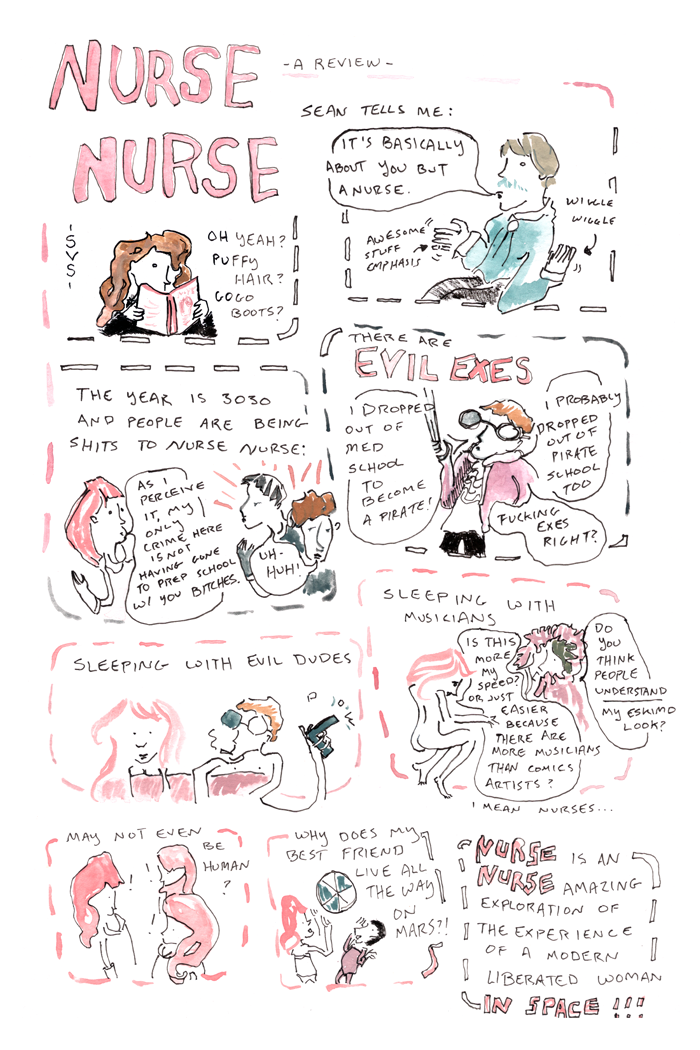 NURSE
NURSE
- A REVIEW -
SEAN TELLS ME:
IT'S BASICALLY
ABOUT YOU BUT
A NURSE.
WIGGLE
WIGGLE
AWESOME
STUFF
EMPHASIS
OH YEAH?
PUFFY
HAIR?
GOGO
BOOTS?
THE YEAR IS 3030
AND PEOPLE ARE BEING
SHITS TO NURSE NURSE:
AS I
PERCEIVE
IT, MY
ONLY
CRIME HERE
IS NOT
HAVING GONE
TO PREP SCHOOL
W/ YOU BITCHES.
UH-
HUH!
THERE ARE
EVIL EXES
I DROPPED
OUT OF
MED
SCHOOL
TO
BECOME
A PIRATE!
I PROBABLY
DROPPED
OUT OF
PIRATE
SCHOOL
TOO
FUCKING
EXES
RIGHT?
SLEEPING WITH EVIL DUDES
SLEEPING WITH
MUSICIANS
IS THIS
MORE
MY
SPEED?
OR JUST
EASIER
BECAUSE
THERE ARE
MORE MUSICIANS
THAN COMICS
ARTISTS?
DO
YOU
THINK
PEOPLE
UNDERSTAND
MY ESKIMO
LOOK?
I MEAN NURSES...
MAY NOT EVEN
BE
HUMAN
?
WHY DOES MY
BEST FRIEND
LIVE ALL
THE WAY
ON
MARS?!
NURSE IS AN
NURSE AMAZING
EXPLORATION OF
THE EXPERIENCE
OF A MODERN
LIBERATED WOMAN
IN SPACE !!!